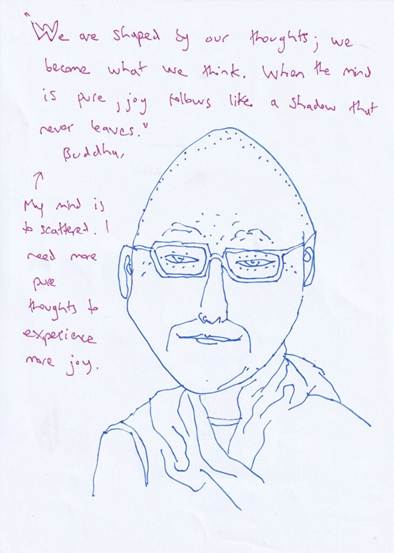 "We are shaped by our thoughts; we
become what we think. When the mind
is pure, joy follows like a shadow that
never leaves."
Buddha.
My mind is
to scattered. I
need more
pure
thoughts to
experience
more joy.